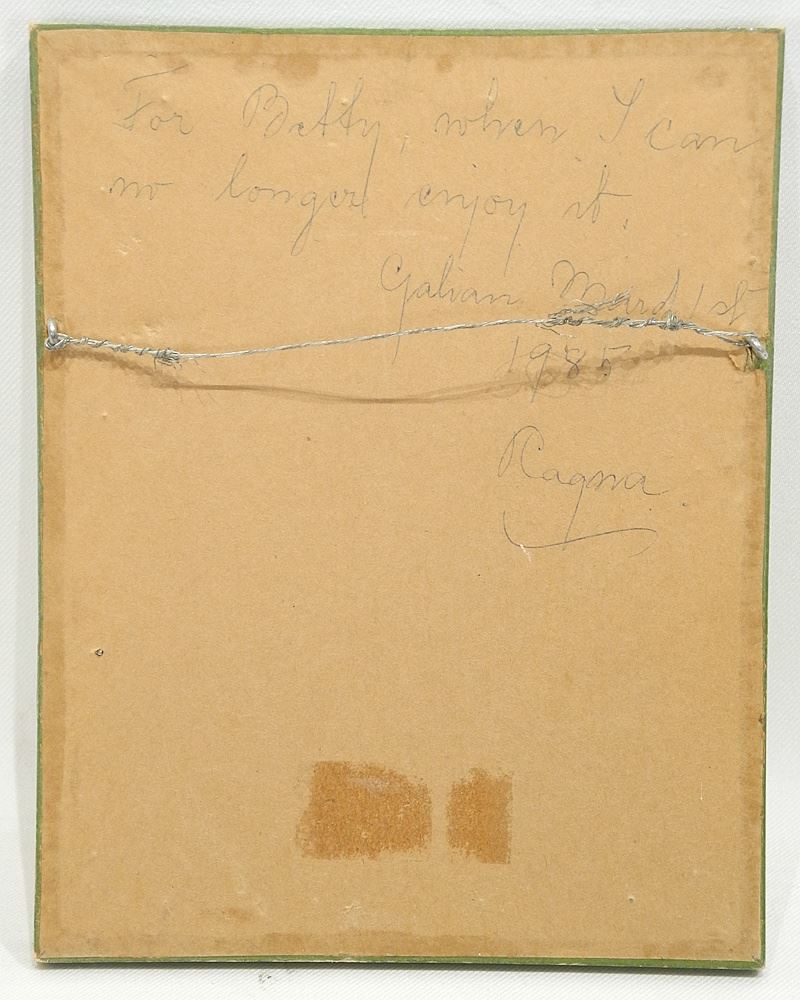 For Betty, when I can
no longer enjoy it.
Galian 1st
1985
Ragna.